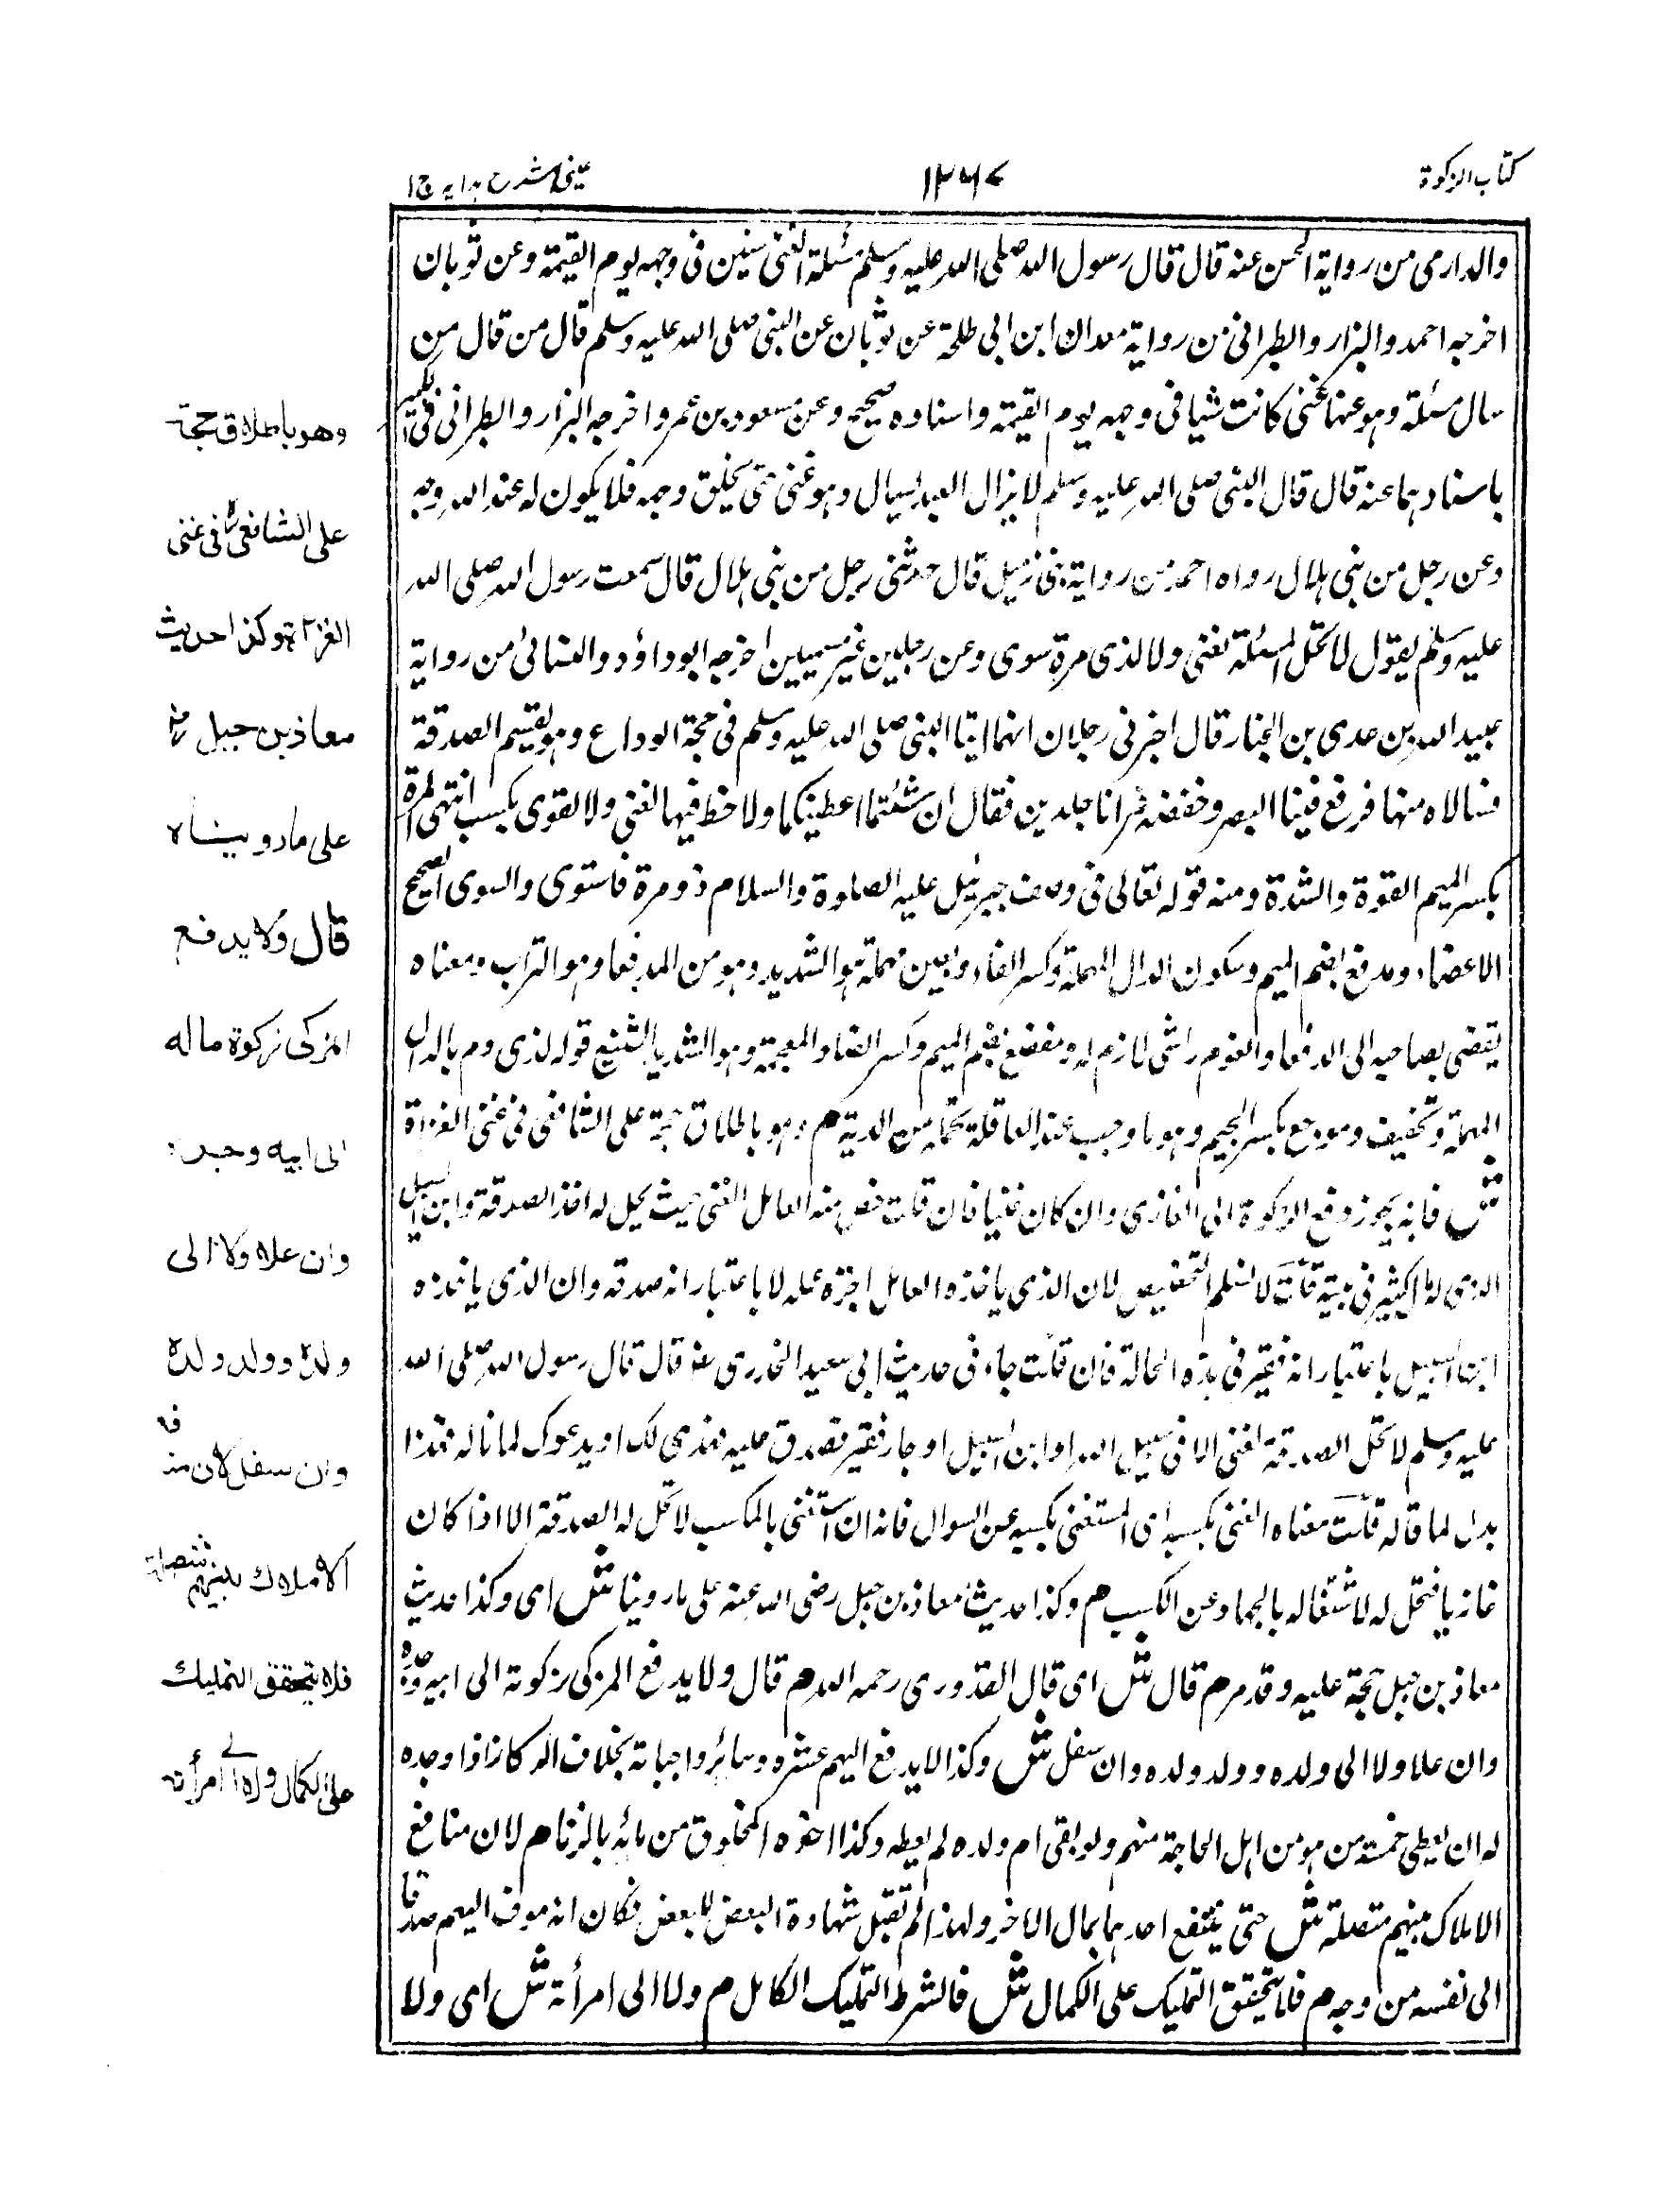 كتاب الزكوة
١٢٦٧
عينى شرح هدايه ج ١
والدارمى من رواية الحسن عنه قال قال رسول الله صلى الله عليه وسلم مسئلة الغنى شين فى وجهه يوم القيمة وعن ثوبان
اخرجه احمد والبزار والطبرانى من رواية معدان ابن ابى طلحة عن ثوبان عن النبى صلى الله عليه وسلم قال من قال من
سال مسئلة وهو عنها غنى كانت شيا فى وجهه يوم القيمة واسناده صحيح وعن مسعود بن عمرو اخرجه البزار والطبرانى فى الكبير
باسنادهما عنه قال قال النبى صلى الله عليه وسلم لا يزال العبد يسال وهو غنى حتى يخلق وجهه فلا يكون له عند الله وجه
وعن رجل من بنى هلال رواه احمد من رواية بنى زميل قال حدثنى رجل من بنى هلال قال سمعت رسول الله صلى الله
عليه وسلم يقول لا تحل المسئلة لغنى ولا لذى مرة سوى وعن رجلين غير مسميين اخرجه ابو داؤد والنسائى من رواية
عبيد الله بن عدى بن الخيار قال اخبرنى رجلان انهما اتيا النبى صلى الله عليه وسلم فى حجة الوداع وهو يقسم الصدقة
فسالاه منها فرفع فينا البصر وخفضه فرانا جلدين فقال ان شئتما اعطيتكما ولا حظ فيها لغنى ولا لقوى يكسب انتهى المرة
بكسر الميم القوة والشدة ومنه قوله تعالى فى وصف جبرئيل عليه الصلوة والسلام ذو مرة فاستوى والسوى الصحيح
الاعضاء ومدقع بضم الميم وسكون الدال المهملة وكسر القاف وبعين مهملة هو الشديد وهو من المدقعا وهو التراب ومعناه
يقضى بصاحبه الى الدقعا والغوم راشى لازم له ومفضع بضم الميم وكسر الضاد المعجمة وهو الشديد الشنيع قوله لذى دم بالدال
المهملة وتخفيف وموجع بكسر الجيم وهو ما وجب عند العاقلة تحمله من الدية م وهو باطلاق حجة على الشافعى فى غنى الغزاة
ش فانه يجوز دفع الزكوة الى الغازى وان كان غنيا فان قلت خص منه العامل الغنى حيث يحل له اخذ الصدقة وابن السبيل
الذى له الكثير فى بيته قلت لا نسلم التخصيص لان الذى ياخذه العامل اجرة عمله لا باعتبار انه صدقه وان الذى ياخذه
ابن السبيل باعتبار انه فقير فى هذه الحالة فان قلت جاء فى حديث ابى سعيد الخدرى عنه قال قال رسول الله صلى الله
عليه وسلم لا تحل الصدقة لغنى الا فى سبيل الله او ابن السبيل او جار فقير تصدق عليه فهدى لك او يدعوك لما ناله فهذا
يدل لما قاله قلت معناه الغنى بكسبه اى المستغنى بكسبه عن السوال فانه ان استغنى بالمكسب لا تحل له الصدقة الا اذا كان
غازيا فتحل له لاشتغاله بالجهاد عن الكسب م وكذا حديث معاذ بن جبل رضى الله عنه على ما روينا ش اى وكذا حديث
معاذ بن جبل حجة عليه وقد مر م قال ش اى قال القدورى رحمه الله م قال ولا يدفع المزكى زكوته الى ابيه وجده
وان علا ولا الى ولده وولد ولده وان سفل ش وكذا لا يدفع اليهم عشره وسائر واجباته بخلاف الركاز اذا وجده
له ان يعطى خمسه من هو من اهل الحاجة منهم ولو بقى ام ولده لم يعطه وكذا اخوه المخلوق من مائه بالزنا م لان منافع
الاملاك بينهم متصلة ش حتى ينتفع احدهما بمال الاخر ولهذا لم تقبل شهادة البعض للبعض فكان انه موف اليهم صدقا
الى نفسه من وجه م فلا يتحقق التمليك على الكمال ش فالشرط التمليك الكامل م ولا الى امرأة ش اى ولا
وهو باطلاق حجة
على الشافعى ؒ فى غنى
الغزاة وكذا حديث
معاذ بن جبل رض
على ما رويناه
قال ولا يدفع
المزكى زكوة ماله
الى ابيه وجده
وان علا ولا الى
ولده وولد ولده
وان سفل لان منافع
الاملاك بينهم متصلة
فلا يتحقق التمليك
على الكمال ولا الى امرأته